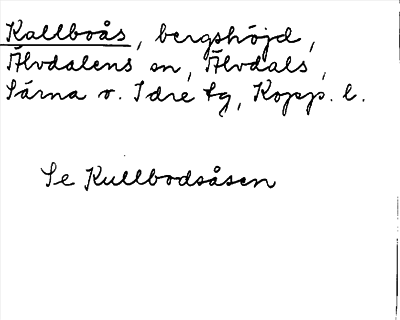 Kallboås, bergshöjd,
Älvdalens sn, Älvdals,
Särna o. Idre tg, Kopp. l.
Se Kullbodsåsen